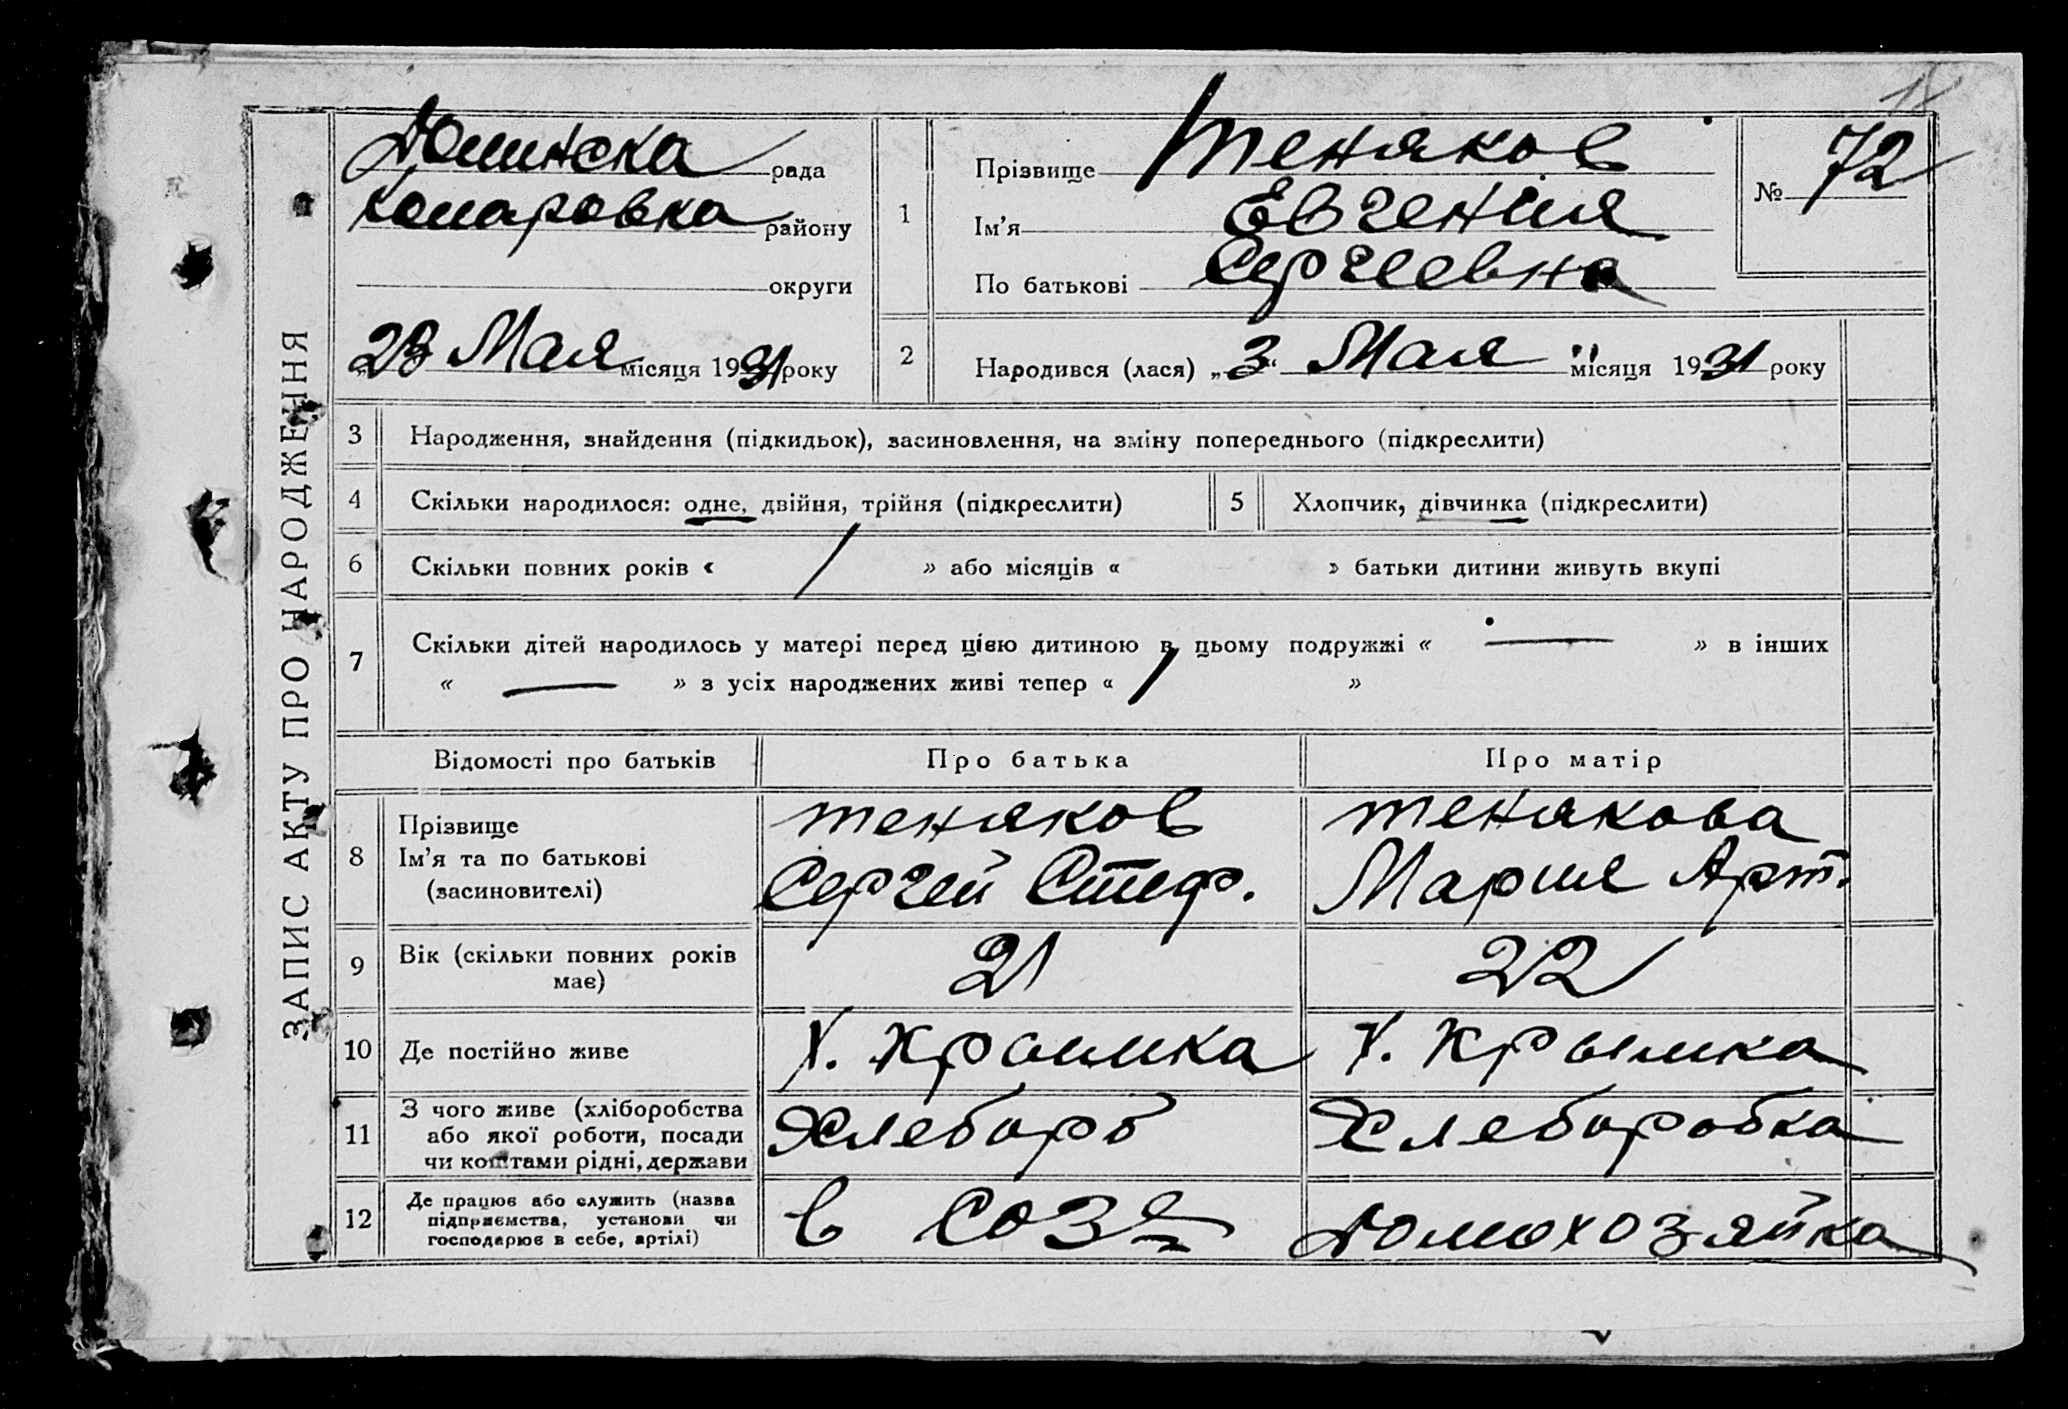 ЗАПИС АКТУ ПРО НАРОДЖЕННЯ
рада
Комаровка району
округи
„23 Мая місяця 1931 року
1
Прізвище Теняков
Ім'я Евгения
По батькові Сергеевна
№ 72
2
Народився (лася) „3“ Мая місяця 1931 року
3 Народження, знайдення (підкидьок), засиновлення, на зміну попереднього (підкреслити)
4 Скільки народилося: одне, двійня, трійня (підкреслити)
5 Хлопчик, дівчинка (підкреслити)
6 Скільки повних років « / » або місяців « » батьки дитини живуть вкупі
7 Скільки дітей народилось у матері перед цією дитиною в цьому подружжі « — » в інших
« — » з усіх народжених живі тепер « »
Відомості про батьків
Про батька
Про матір
8
Прізвище
Ім'я та по батькові
(засиновителі)
Теняков
Сергей Стеф.
Тенякова
Мария Арт.
9
Вік (скільки повних років
має)
21
22
10 Де постійно живе
Х. Крымка
Х. Крымка
11
З чого живе (хліборобства
або якої роботи, посади
чи коштами рідні, держави
Хлебороб
Хлеборобка
12
Де працює або служить (назва
підприємства, установи чи
господарює в себе, артілі)
в СОЗе
Домохозяйка